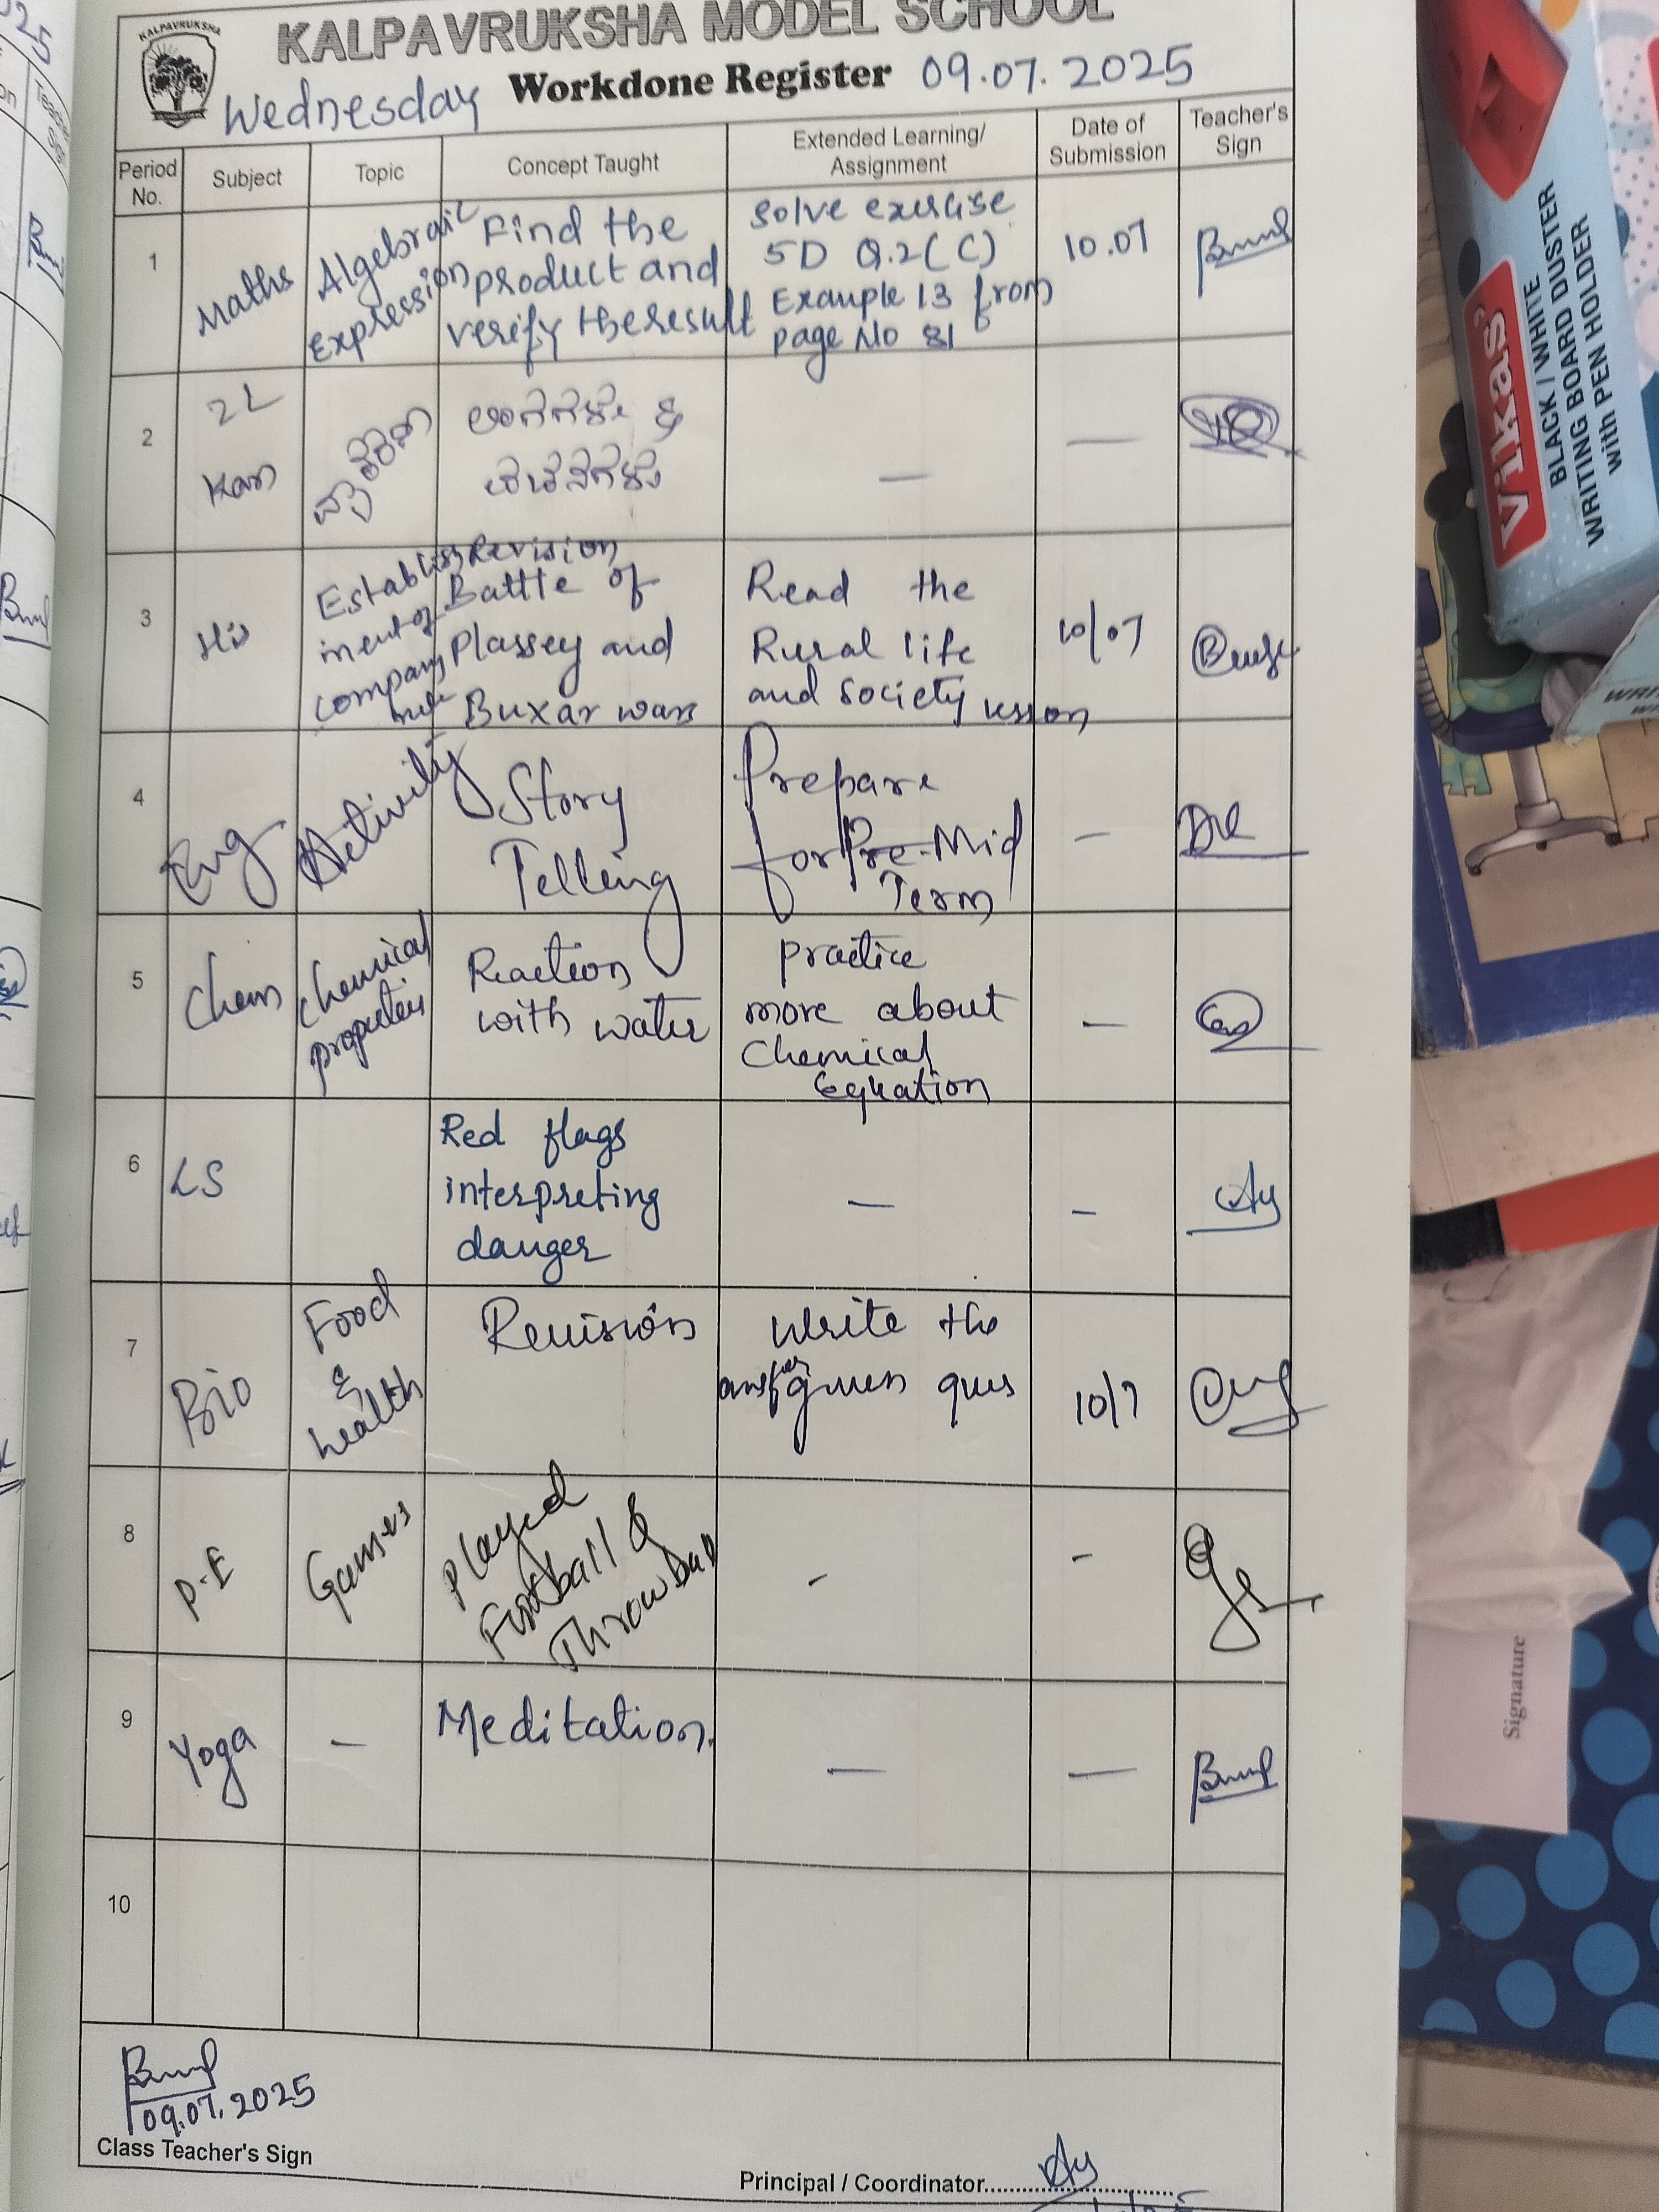 KALPAVRUKSHA
KALPAVRUKSHA MODEL SCHOOL
Wednesday Workdone Register 09.07.2025
Period No. Subject Topic Concept Taught Extended Learning/ Assignment Date of Submission Teacher's Sign
1 Maths Algebraic Expression Find the product and verify the result Solve exercise 5D Q.2(C) Example 13 from page No 81 10.07
2 2L Kan —  —
3 His Establishment of company rule Revision Battle of Plassey and Buxar wars Read the Rural life and society lesson 10/07
4 Eng Activity Story Telling Prepare for Pre-Mid Term -
5 Chem Chemical properties Reaction with water practice more about Chemical Equation —
6 LS Red flags interpreting danger — -
7 Bio Food & health Revision Write the ans for given ques 10/7
8 P.E Games Played Football & Throw ball - -
9 Yoga - Meditation. — —
10
09.07.2025
Class Teacher's Sign
Principal / Coordinator
Vikas
BLACK / WHITE
WRITING BOARD DUSTER
with PEN HOLDER
Signature